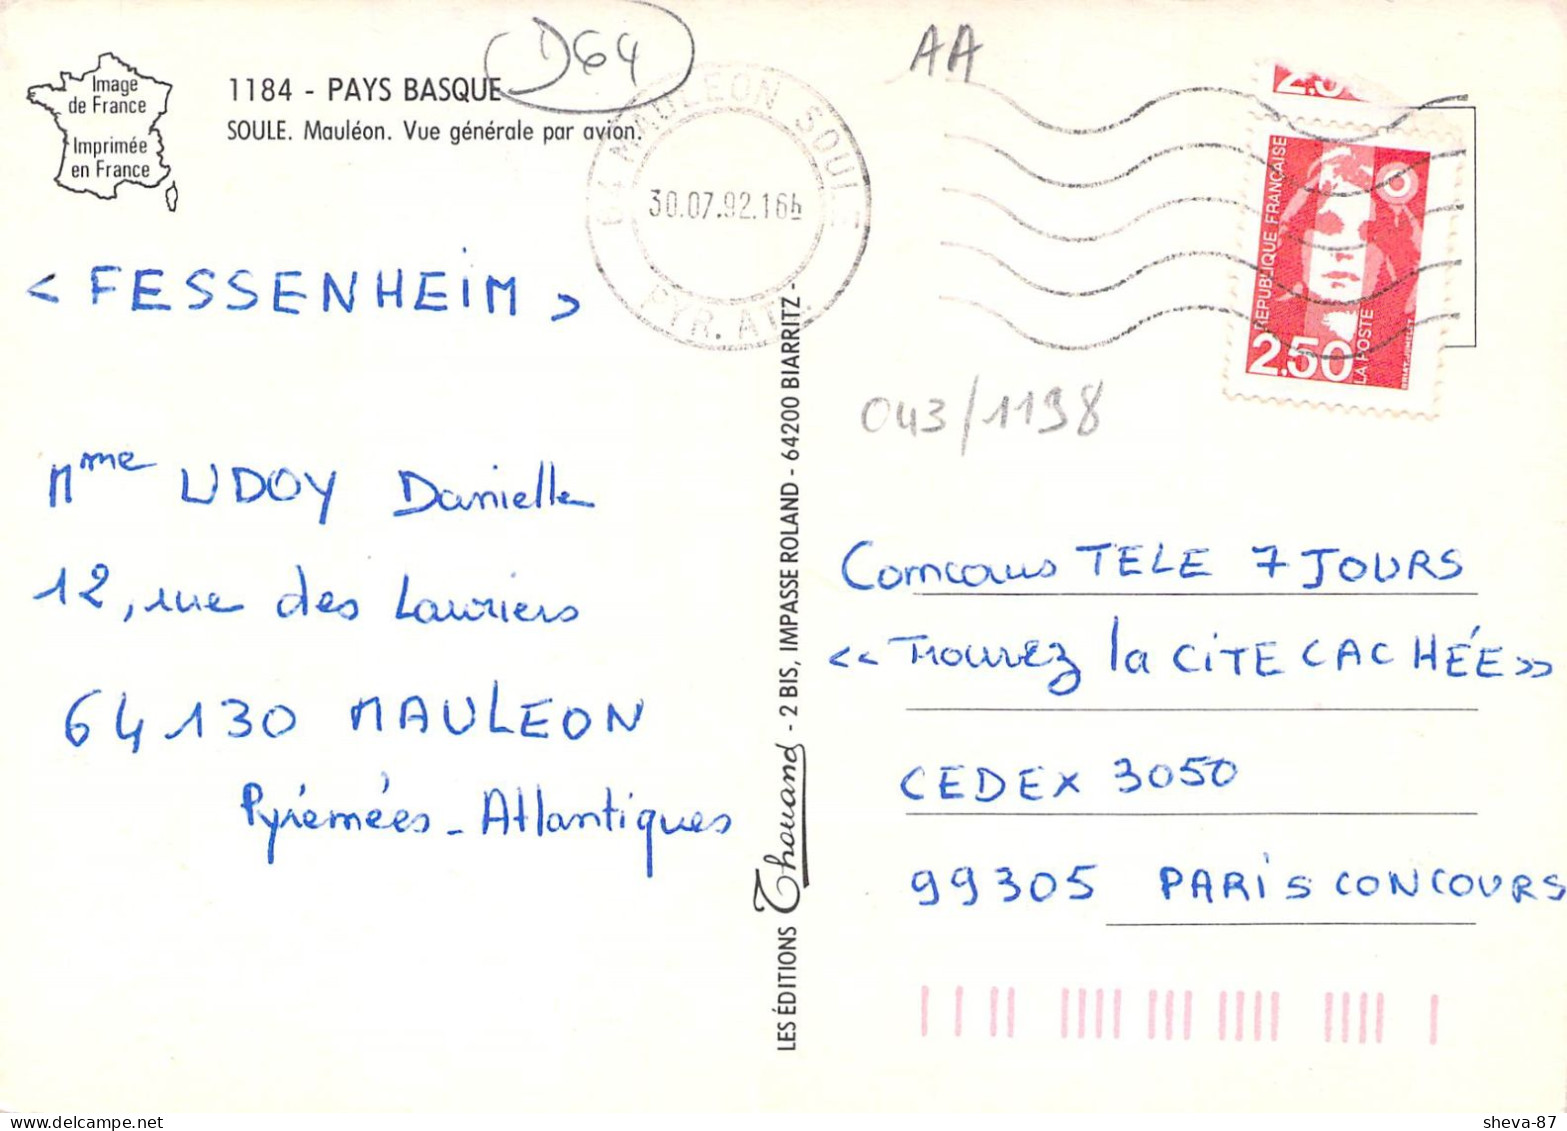 Image
de France
Imprimée
en France
1184 - PAYS BASQUE
SOULE. Mauléon. Vue générale par avion.
D64
AA
64 MAULEON SOULE
30.07.92.16h
PYR. ATL.
2.50
REPUBLIQUE FRANÇAISE
LA POSTE
2.50
< FESSENHEIM >
043/1198
Mme UDOY Danielle
12, rue des Lauriers
64130 MAULEON
Pyrémées - Atlantiques
LES ÉDITIONS Thouand - 2 BIS, IMPASSE ROLAND - 64200 BIARRITZ -
Concours TELE 7 JOURS
<< Trouvez la CITE CACHÉE >>
CEDEX 3050
99305 PARIS CONCOURS
sheva-87